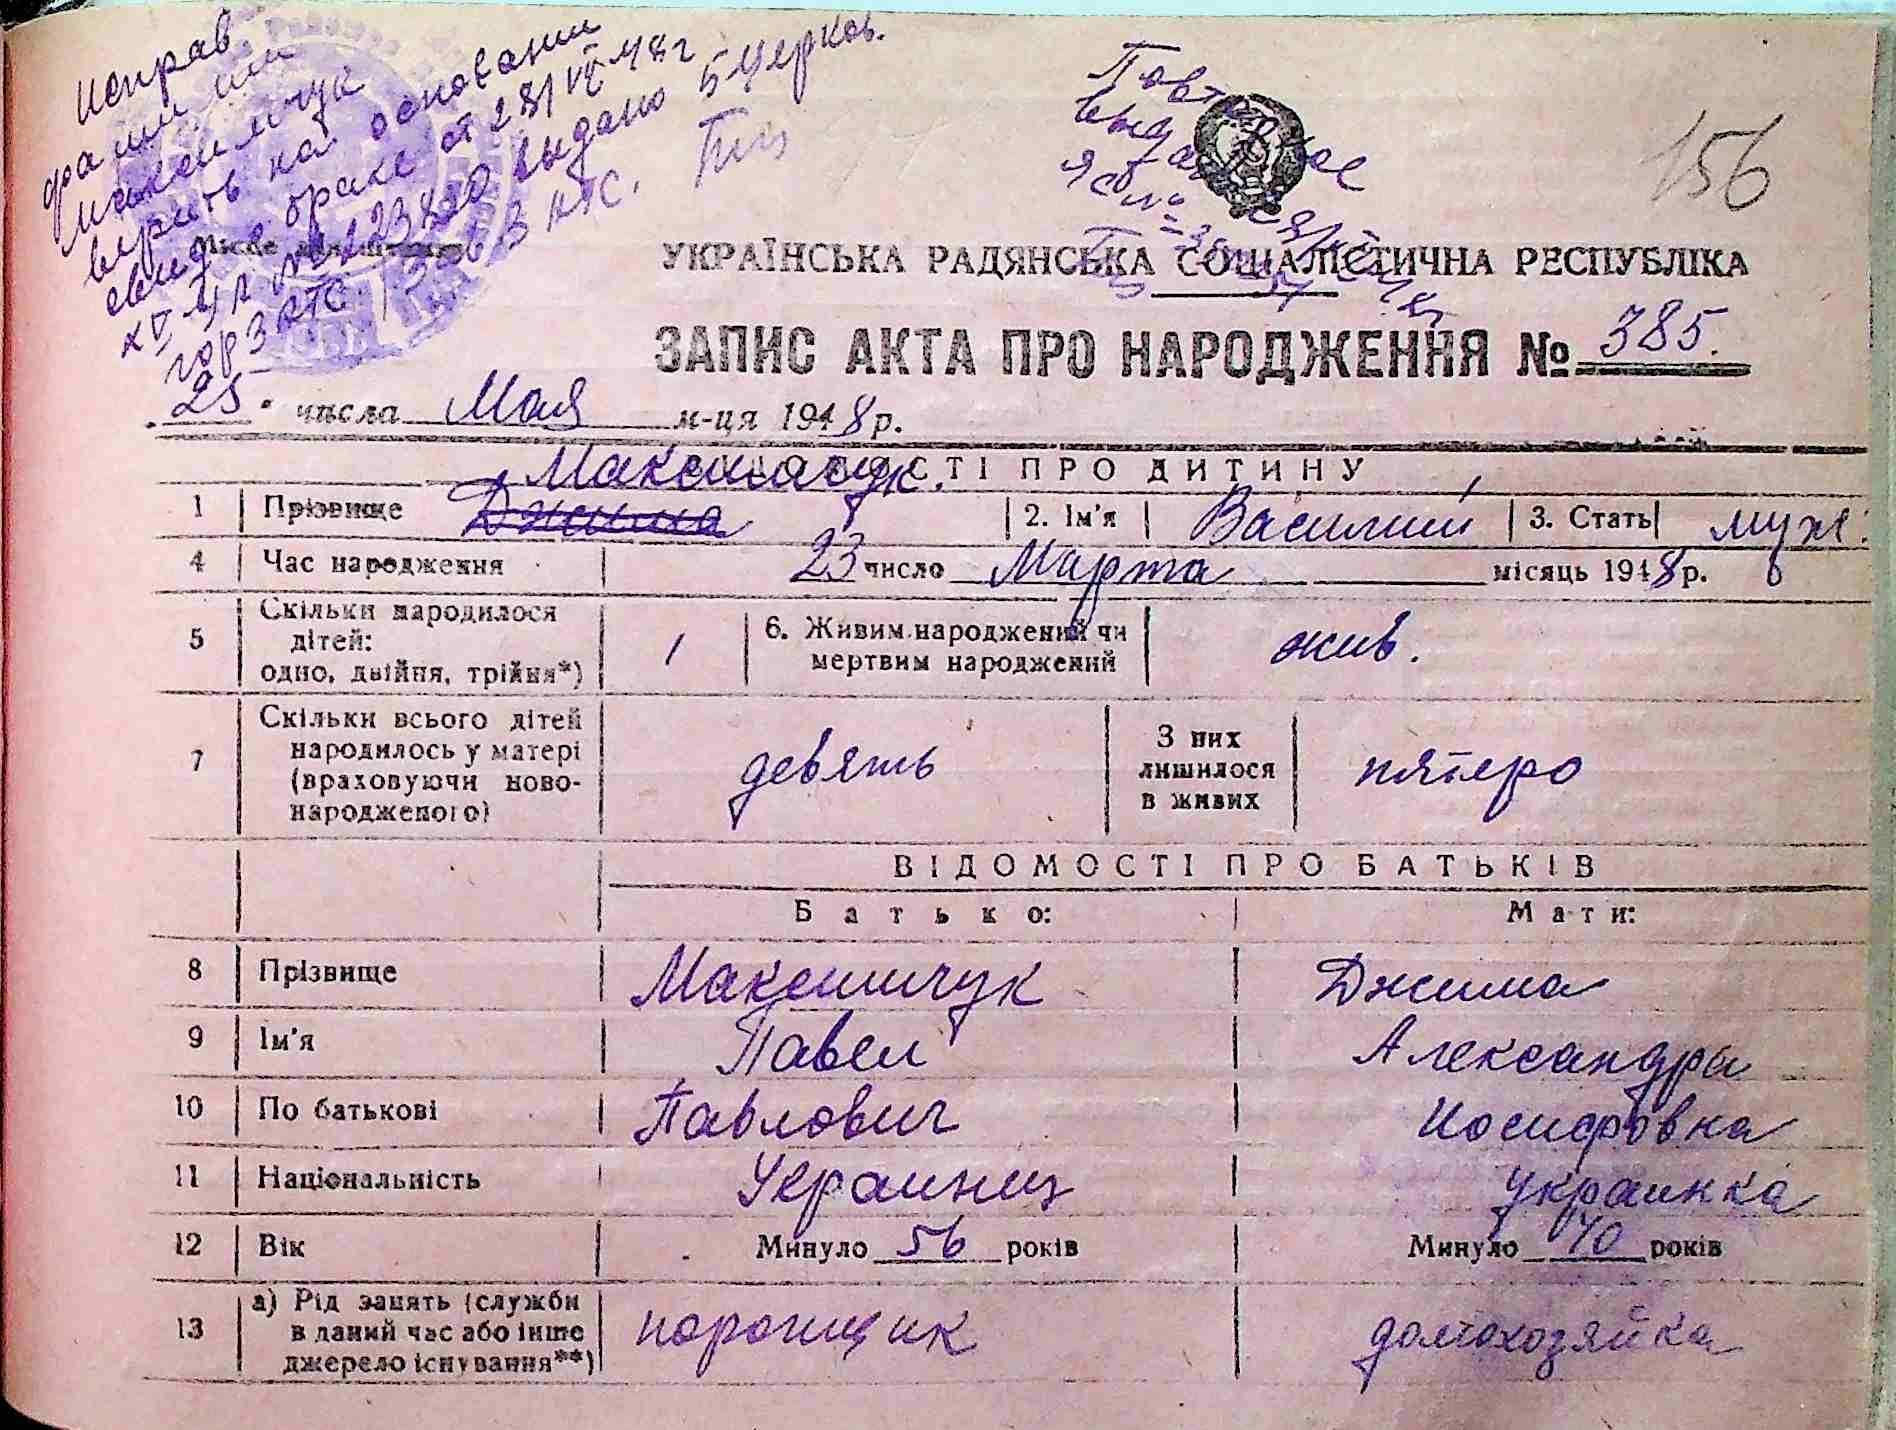 Исправ.
фамилии
верить на основании
свид. о браке от 28/VII 48 г
выдано
Повторное
выдано
156
Місце для штампу
УКРАЇНСЬКА РАДЯНСЬКА СОЦІАЛІСТИЧНА РЕСПУБЛІКА
ЗАПИС АКТА ПРО НАРОДЖЕННЯ № 385.
25 числа Мая м-ця 1948 р.
ПРО ДИТИНУ
Максимчук.
1 Прізвище Джима 2. Ім'я Василий 3. Стать муж.
4 Час народження 23 число Марта місяць 1948 р.
5 Скільки народилося дітей: одно, двійня, трійня*) 1 6. Живим народжений чи мертвим народжений жив.
7 Скільки всього дітей народилось у матері (враховуючи новонародженого) девять З них лишилося в живих пятеро
ВІДОМОСТІ ПРО БАТЬКІВ
Батько: Мати:
8 Прізвище Максимчук Джима
9 Ім'я Павел Александра
10 По батькові Павлович Иосифовна
11 Національність Украинец украинка
12 Вік Минуло 56 років Минуло 40 років
13 а) Рід занять (служби в даний час або інше джерело існування**) домохозяйка